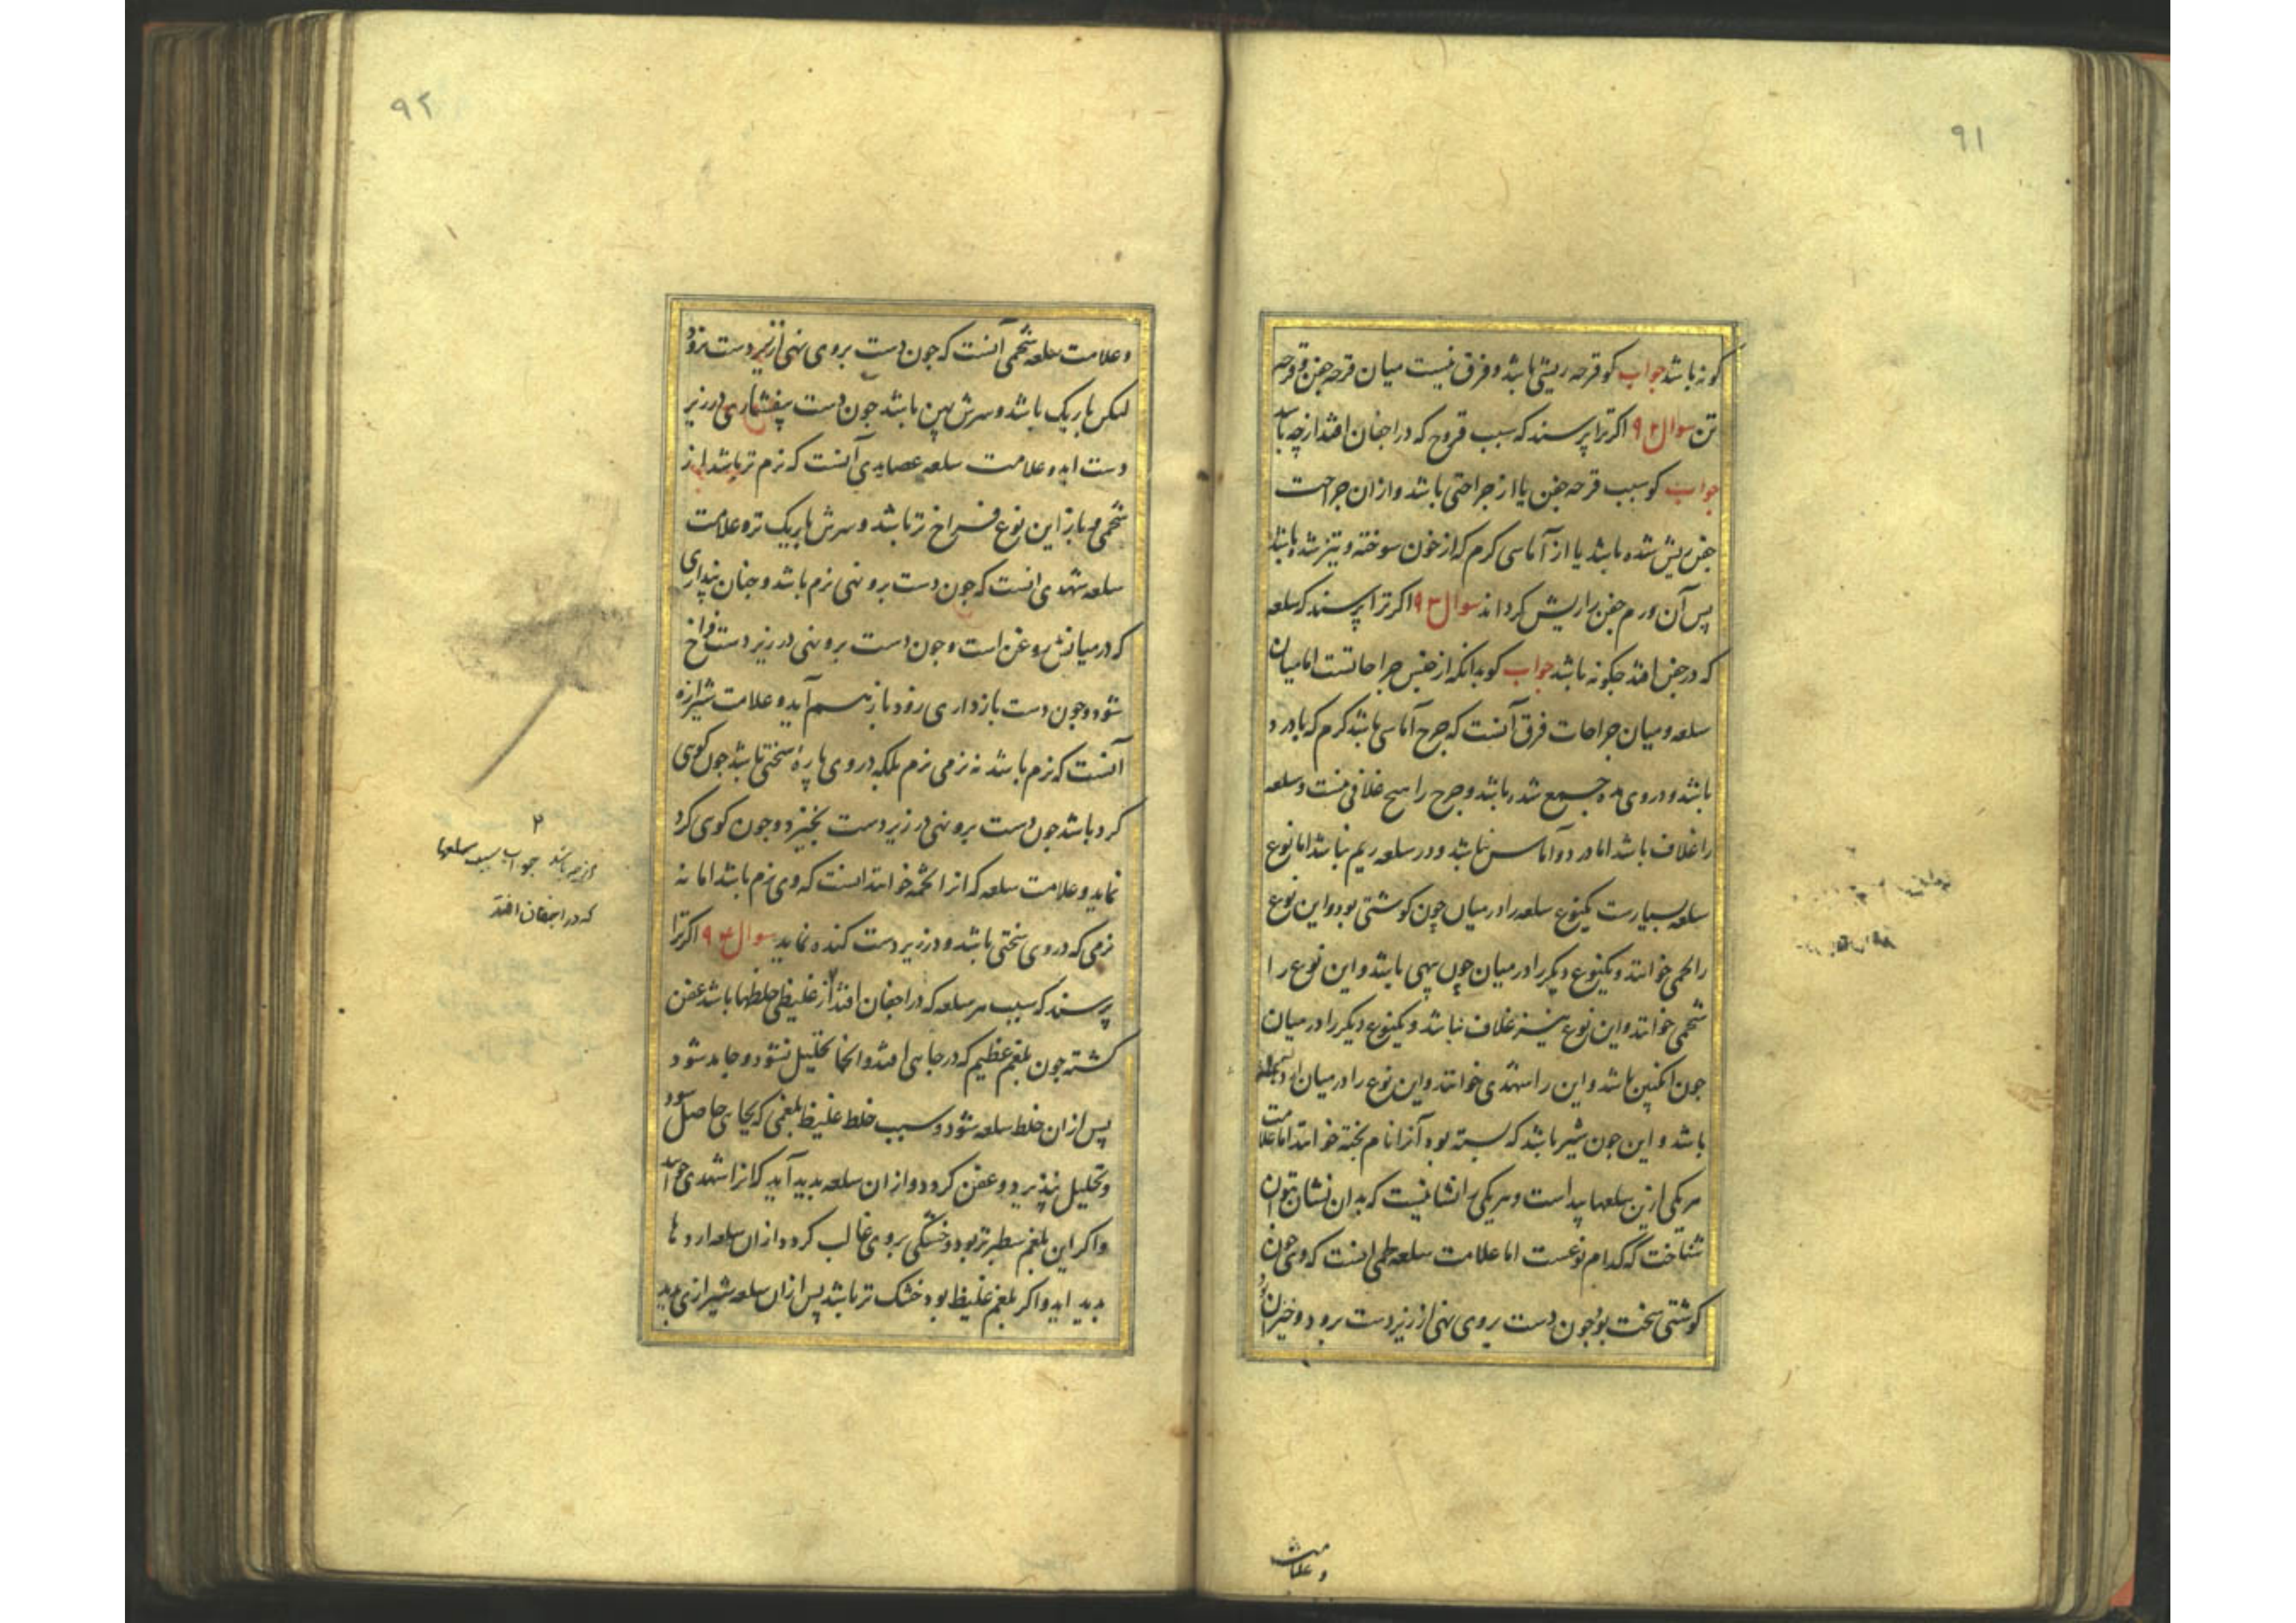 ۹۱
کونه باشد جواب کو قرحه ریشی باشد و فرق نیست میان قرحه جفن و قرحه
تن سوال ۹۲ اکر ترا پرسند که سبب قروح که در اجفان افتد از چه باشد
جواب کو سبب قرحه جفن یا از جراحتی باشد و از ان جراحت
جفن ریش شده باشد یا از آماسی کرم که از خون سوخته و تیز شده باشد
پس آن ورم جفن را ریش کرداند سوال ۹۳ اکر ترا پرسند که سلعه
که در جفن افتد جکونه باشد جواب کو بدانکه از جنس جراحاتست اما میان
سلعه و میان جراحات فرق آنست که جرح آماسی باشد کرم که با درد
باشد و در وی مده جمع شده باشد و جرح را هیچ غلافی نیست و سلعه
را غلاف باشد اما درد و آماس نباشد و در سلعه ریم نباشد اما نوع
سلعه بسیارست یکنوع سلعه را در میان چون کوشتی بود و این نوع
را لحمی خوانند و یکنوع دیکر را در میان چون پیهی باشد و این نوع را
شحمی خوانند و این نوع نیز غلاف نباشد و یکنوع دیکر را در میان
جون انکبین باشد و این را شهدی خوانند و این نوع را در میان
باشد و این جون شیر باشد که بسته بود آنرا نام بخته خوانند اما علامت
هر یکی ازین سلعها پیداست و هر یکی را نشانیست که بدان نشان بتوان
شناخت که کدام نوعست اما علامت سلعه لحمی انست که وی چون
کوشتی سخت بود جون دست بر وی نهی از زیر دست برود و خیزان بود
و علامت
۹۲
و علامت سلعه شحمی آنست که جون دست بر وی نهی از زیر دست برود
لیکن باریک باشد و سرش پهن باشد جون دست بیفشاری در زیر
دست اید و علامت سلعه عصایدی آنست که نرم تر باشد از
شحمی و باز این نوع فراخ تر باشد و سرش باریک تر و علامت
سلعه شهدی انست که جون دست برو نهی نرم باشد و جنان پنداری
که در میانش روغن است و جون دست برو نهی در زیر دست فراخ
شود و جون دست بازداری زود باز بهم آید و علامت شیرازه
آنست که نرم باشد نه نرمی نرم بلکه در وی پاره سختی باشد جون کوی
کرد باشد جون دست برو نهی در زیر دست بخیزد و جون کوی کرد
نماید و علامت سلعه که انرا خوانند انست که وی نرم باشد اما نه
نرمی که در وی سختی باشد و در زیر دست کنده نماید سوال ۹۴ اکر ترا
پرسند که سبب هر سلعه که در اجفان افتد از غلیظی خلطها باشد عفن
کشته جون بلغم عظیم که در جایی افتد و انجا تحلیل نشود و جامد شود
پس از ان خلط سلعه شود و سبب خلط غلیظ بلغمی که بجای حاصل شود
و تحلیل نپذیرد و عفن کردد و از ان سلعه بدید آید که انرا شهدی خوانند
و اکر این بلغم سطبر تر بود و خشکی بر وی غالب کردد از ان سلعه اردها
بدید اید و اکر بلغم غلیظ بود خشک تر باشد پس از ان سلعه شیرازی بدید
از چه باشد جواب سبب سلعها
که در اجفان افتد